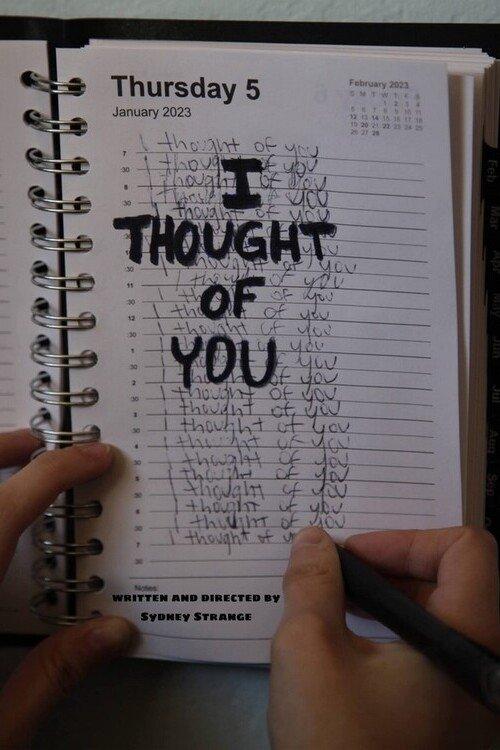 Thursday 5
January 2023
February 2023
S M T W T F S
1 2 3 4
5 6 7 8 9 10 11
12 13 14 15 16 17 18
19 20 21 22 23 24 25
26 27 28
7 I thought of you
30 I thought of you
8 I thought of you
I
THOUGHT
OF
YOU
30
11 I thought of you
30 I thought of you
12 I thought of you
30 I thought of you
1 I thought of you
30 I thought of you
2 I thought of you
30 I thought of you
3 I thought of you
30 I thought of you
4 I thought of you
30 I thought of you
5 I thought of you
30 I thought of you
6 I thought of you
30 I thought of you
7 I thought of
30
Notes:
WRITTEN AND DIRECTED BY
SYDNEY STRANGE